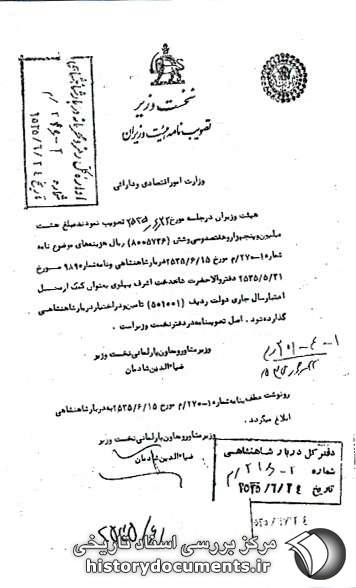 نخست وزیر
تصویب نامه هیئت وزیران
اداره کل رمز و محرمانه دربار شاهنشاهی
شماره ۲-۲۶۶/م
تاریخ ۲۵۳۵/۶/۲۴
وزارت امور اقتصادی و دارائی
هیئت وزیران در جلسه مورخ تصویب نمودند مبلغ هشت
میلیون و پنجهزار و هفتصد و سی و شش (۸۰۰۵۷۳۶) ریال هزینه‌های موضوع نامه
شماره ۱-۲۷۰/م مورخ ۲۵۳۵/۶/۱۵ دربار شاهنشاهی و نامه شماره ۹۸۹ مورخ
۲۵۳۵/۵/۲۱ دفتر والاحضرت شاهدخت اشرف پهلوی به عنوان کمک از محل
اعتبار سال جاری دولت ردیف (۵۰۱۰۰۱) تامین و در اختیار دربار شاهنشاهی
گذارده شود. اصل تصویبنامه در دفتر نخست وزیر است.
وزیر مشاور و معاون پارلمانی نخست وزیر
ضیاءالدین شادمان
رونوشت عطف به نامه شماره ۱-۲۷۰/م مورخ ۲۵۳۵/۶/۱۵ به دربار شاهنشاهی
ابلاغ میگردد.
وزیر مشاور و معاون پارلمانی نخست وزیر
ضیاءالدین شادمان
دفتر کل دربار شاهنشاهی
شماره ۲-۲۶۶/م
تاریخ ۲۵۳۵/۶/۲۴
مرکز بررسی اسناد تاریخی
historydocuments.ir